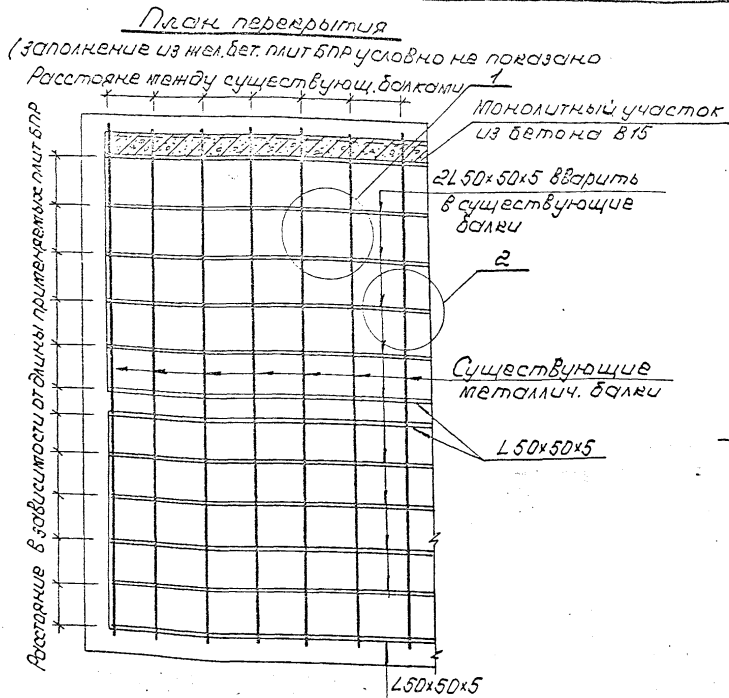 План перекрытия
(заполнение из жел.бет. плит БПР условно не показано
Расстояне между существующ. балками
1
Монолитный участок
из бетона В15
2L50×50×5 вварить
в существующие
балки
2
Существующие
металлич. балки
L50×50×5
Расстояние в зависимости от длины применяемых плит БПР
L50×50×5